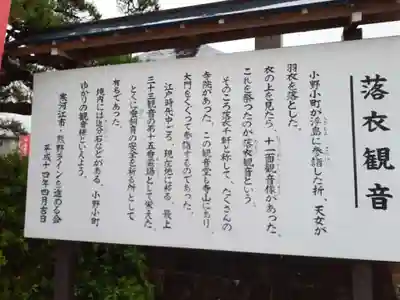 落衣観音
小野小町が浮島に参詣した折、天女が
羽衣を落とした。
衣の上を見たら、十一面観音像があった。
これを祭ったのが落衣観音という。
そのころ落衣千軒と称して、たくさんの
寺院があった。この観音堂も寺山にあり
大門をくぐって参詣するのであった。
江戸時代中ごろ、現在地に移る。最上
三十三観音の第十五番霊場として栄えた。
とくに蚕飼育の安全を祈る所として
有名であった。
境内には追分石などがある。小野小町
ゆかりの観音様といえよう。
寒河江市・熊野ラインを進める会
平成十四年四月吉日